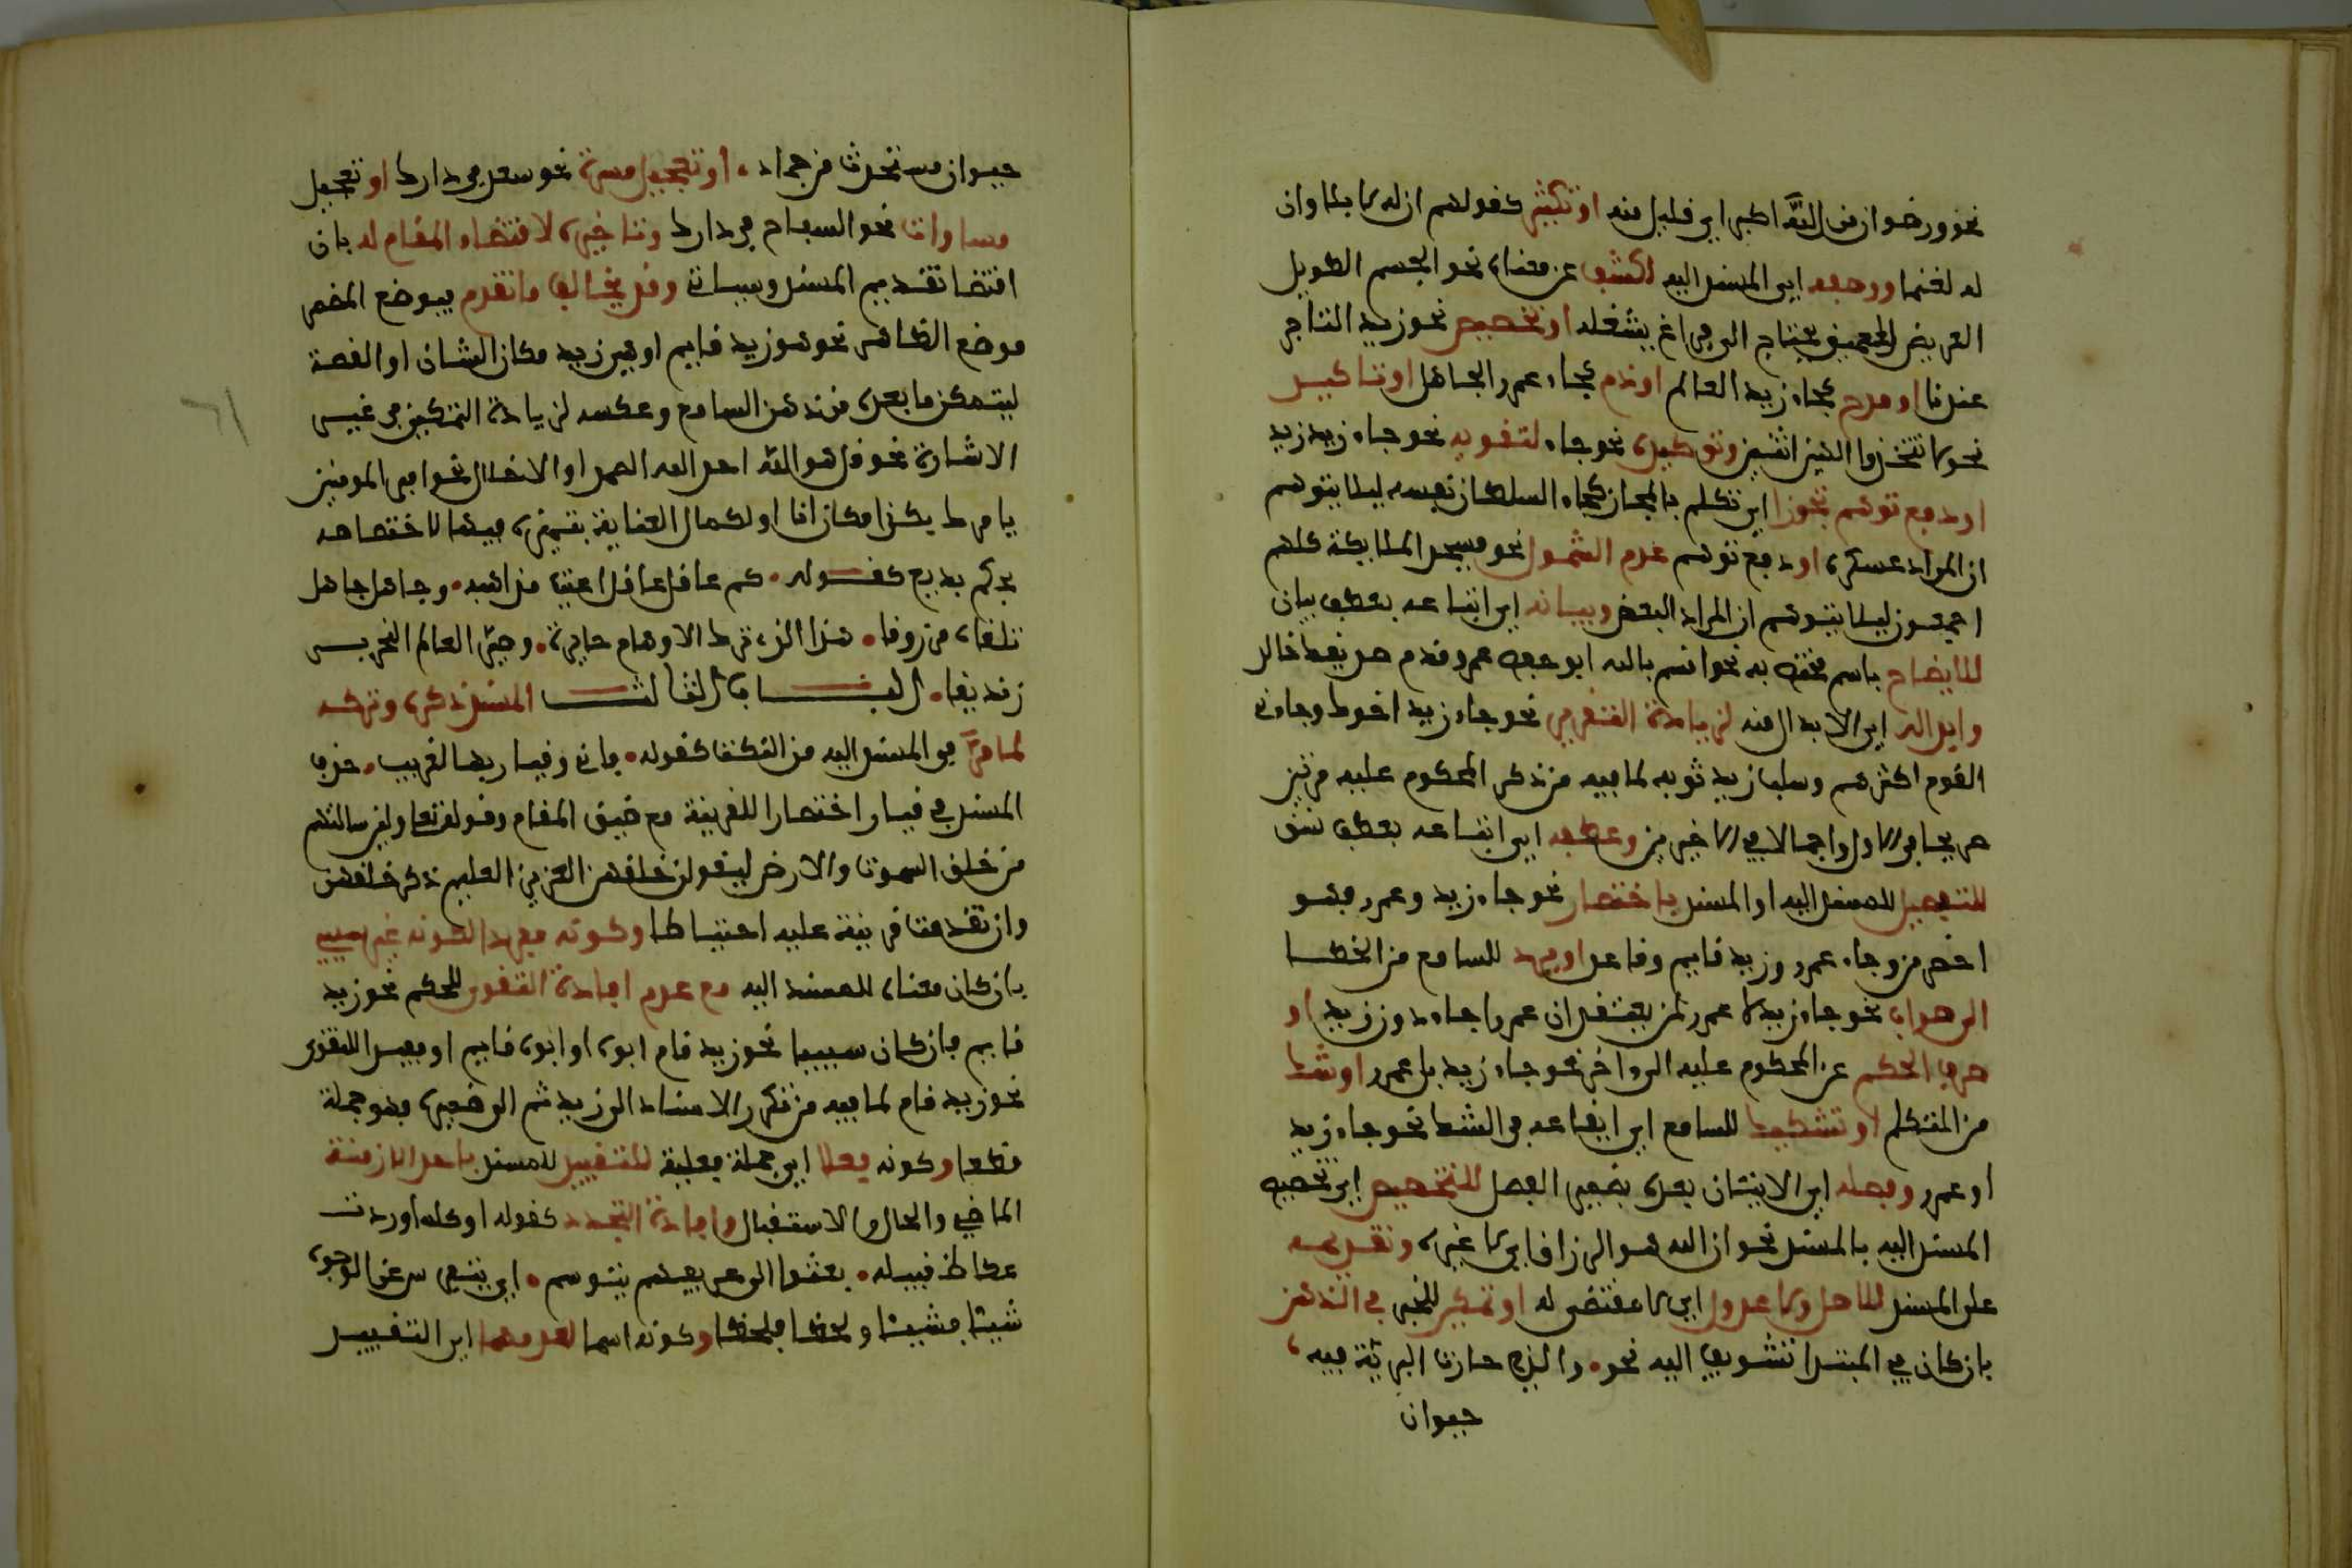 نحو ورضوان من الله اكبر اي قليل منه او تكثير كقولهم ان له لابلا وان
له لغنما ووصفه اي المسند اليه لكشف عن معناه نحو الجسم الطويل
العريض العميق يحتاج الى فراغ يشغله او تخصيص نحو زيد التاجر
عندنا او مدح نحو جاء زيد العالم او ذم نحو جاء عمرو الجاهل او تاكيد
نحو لا تتخذوا الهين اثنين وتوكيده نحو جاء لتقويه نحو جاء زيد زيد
او دفع توهم تجوزا اي تكلم بالمجاز كجاء السلطان نفسه ليلا يتوهم
ان المراد عسكره او دفع توهم عدم الشمول نحو فسجد الملايكة كلهم
اجمعون ليلا يتوهم ان المراد البعض وبيانه اي اتباعه بعطف بيان
للايضاح باسم مختص به نحو اقسم بالله ابو حفص عمر وقدم صديقك خالد
وابداله اي الابدال منه لزيادة التقرير نحو جاء زيد اخوك وجاءني
القوم اكثرهم وسلب زيد ثوبه لما فيه من ذكر المحكوم عليه مرتين
صريحا في الاول واجمالا في الاخيرين وعطفه اي اتباعه بعطف نسق
للتفصيل للمسند اليه او المسند باختصار نحو جاء زيد وعمرو فهو
اخصر من وجاء عمرو وزيد قايم وقاعد او يرد للسامع من الخطا
الى صواب نحو جاء زيد لا عمرو لمن يعتقد ان عمرا جاء دون زيد او
صرف الحكم عن المحكوم عليه الى ءاخر نحو جاء زيد بل عمرو او شك
من المتكلم او تشكيك للسامع اي ايقاعه في الشك نحو جاء زيد
او عمرو وفصله اي الاتيان بعده بضمير الفصل للتخصيص اي تخصيص
المسند اليه بالمسند نحو ان الله هو الرزاق اي لا غيره وتقديمه
على المسند للاصل ولا عدول اي لا مقتضى له او تمكين للخبر في الذهن
بان كان في المبتدا تشويق اليه نحو والذي حارت البرية فيه
حيوان
حيوان مستحدث من جماد، او تعجيل مسرة نحو سعد في دارك او تعجيل
مساوات نحو السفاح في دارك وتاخيره لاقتضاء المقام له بان
اقتضا تقديم المسند وسياتي وقد يخالف ما تقدم فيوضع المضمر
موضع الظاهر نحو هو زيد قايم او هي زيد مكان الشان او القصة
ليتمكن ما بعده من ذهن السامع وعكسه لزيادة التمكين في غير
الاشارة نحو قل هو الله احد الله الصمد او الاجلال نحو امير المومنين
يامرك بكذا مكان انا او لكمال العناية بتمييزه فيهما لاختصاصه
بحكم بديع كقوله. كم عاقل عاقل اعيت مذاهبه. وجاهل جاهل
تلقاه مرزوقا. هذا الذي ترك الاوهام حايرة. وصير العالم النحرير
زنديقا. الباب الثالث المسند ذكره وتركه
لما مر في المسند اليه من النكت كقوله. فاني وقيار بها لغريب. حذف
المسند في قيار اختصارا للقرينة مع ضيق المقام وقوله تعلى ولين سالتهم
من خلق السموت والارض ليقولن خلقهن العزيز العليم ذكر خلقهن
وان تقدمت قرينة عليه احتياطا وكونه مفردا لكونه غير سببي
بان كان معناه للمسند اليه مع عدم افادة التقوي للحكم نحو زيد
قايم فان كان سببيا نحو زيد قام ابوه او ابوه قايم او مفيدا للتقوي
نحو زيد قام لما فيه من تكرر الاسناد الى زيد ثم الى ضميره فهو جملة
قطعا وكونه فعلا اي جملة فعلية للتقييد للمسند باحد الازمنة
الماضي والحال والاستقبال وافادة التجدد كقوله او كلما وردت
عكاظ قبيلة. بعثوا الي عريفهم يتوسم. اي يتفرس عن الوجوه
شيئا فشيئا ولحظا فلحظا وكونه اسما لعدمهما اي التقييد